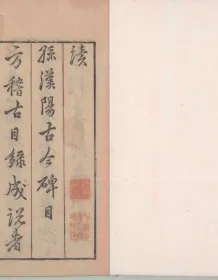 读
孫漢陽古今碑目
方稽古目錄成説者